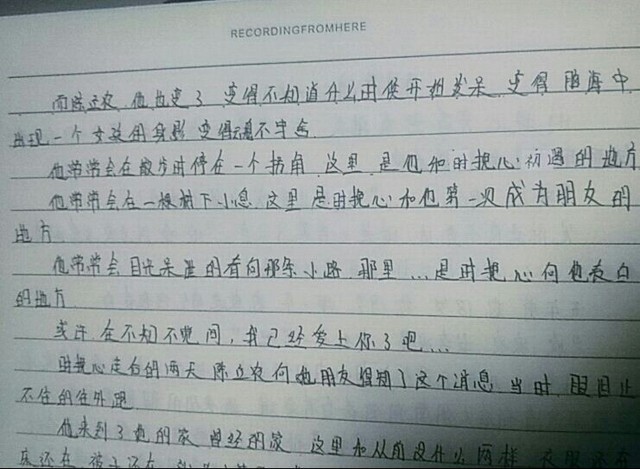 RECORDINGFROMHERE
而陈立农 他也变了 变得不知道什么时候开始发呆 变得脑海中
出现一个女孩的身影 变得魂不守舍
他常常会在散步时停在一个拐角 这里 是他和时挽心初遇的地方
他常常会在一棵树下小息 这里 是时挽心和他第一次成为朋友的
地方
他常常会目光呆滞的看向那条小路 那里...是时挽心向他表白
的地方
或许 在不知不觉间，我已经爱上你了吧...
时挽心走后的两天 陈立农向她朋友得知了这个消息 当时 眼泪止
不住的往外跑
他来到了她的家 曾经的家 这里和从前没什么两样 衣服还在
床还在 被子还在